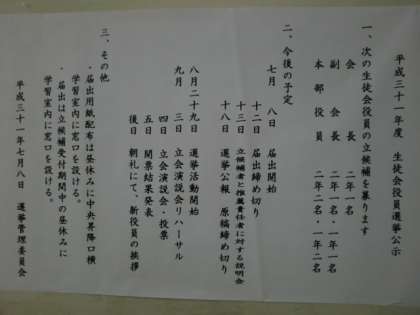 平成三十一年度 生徒会役員選挙公示
一、次の生徒会役員の立候補を募ります
会長 二年一名
副会長 二年一名・一年一名
本部役員 二年二名・一年二名
二、今後の予定
七月 八日 届出開始
十二日 届出締め切り
十三日 立候補者と推薦責任者に対する説明会
十八日 選挙公報 原稿締め切り
八月二十九日 選挙活動開始
九月 三日 立会演説会リハーサル
四日 立会演説会・投票
五日 開票結果発表
後日 朝礼にて、新役員の挨拶
三、その他
・届出用紙配布は昼休みに中央昇降口横
学習室内に窓口を設ける。
・届出は立候補受付期間中の昼休みに
学習室内に窓口を設ける。
平成三十一年七月八日 選挙管理委員会